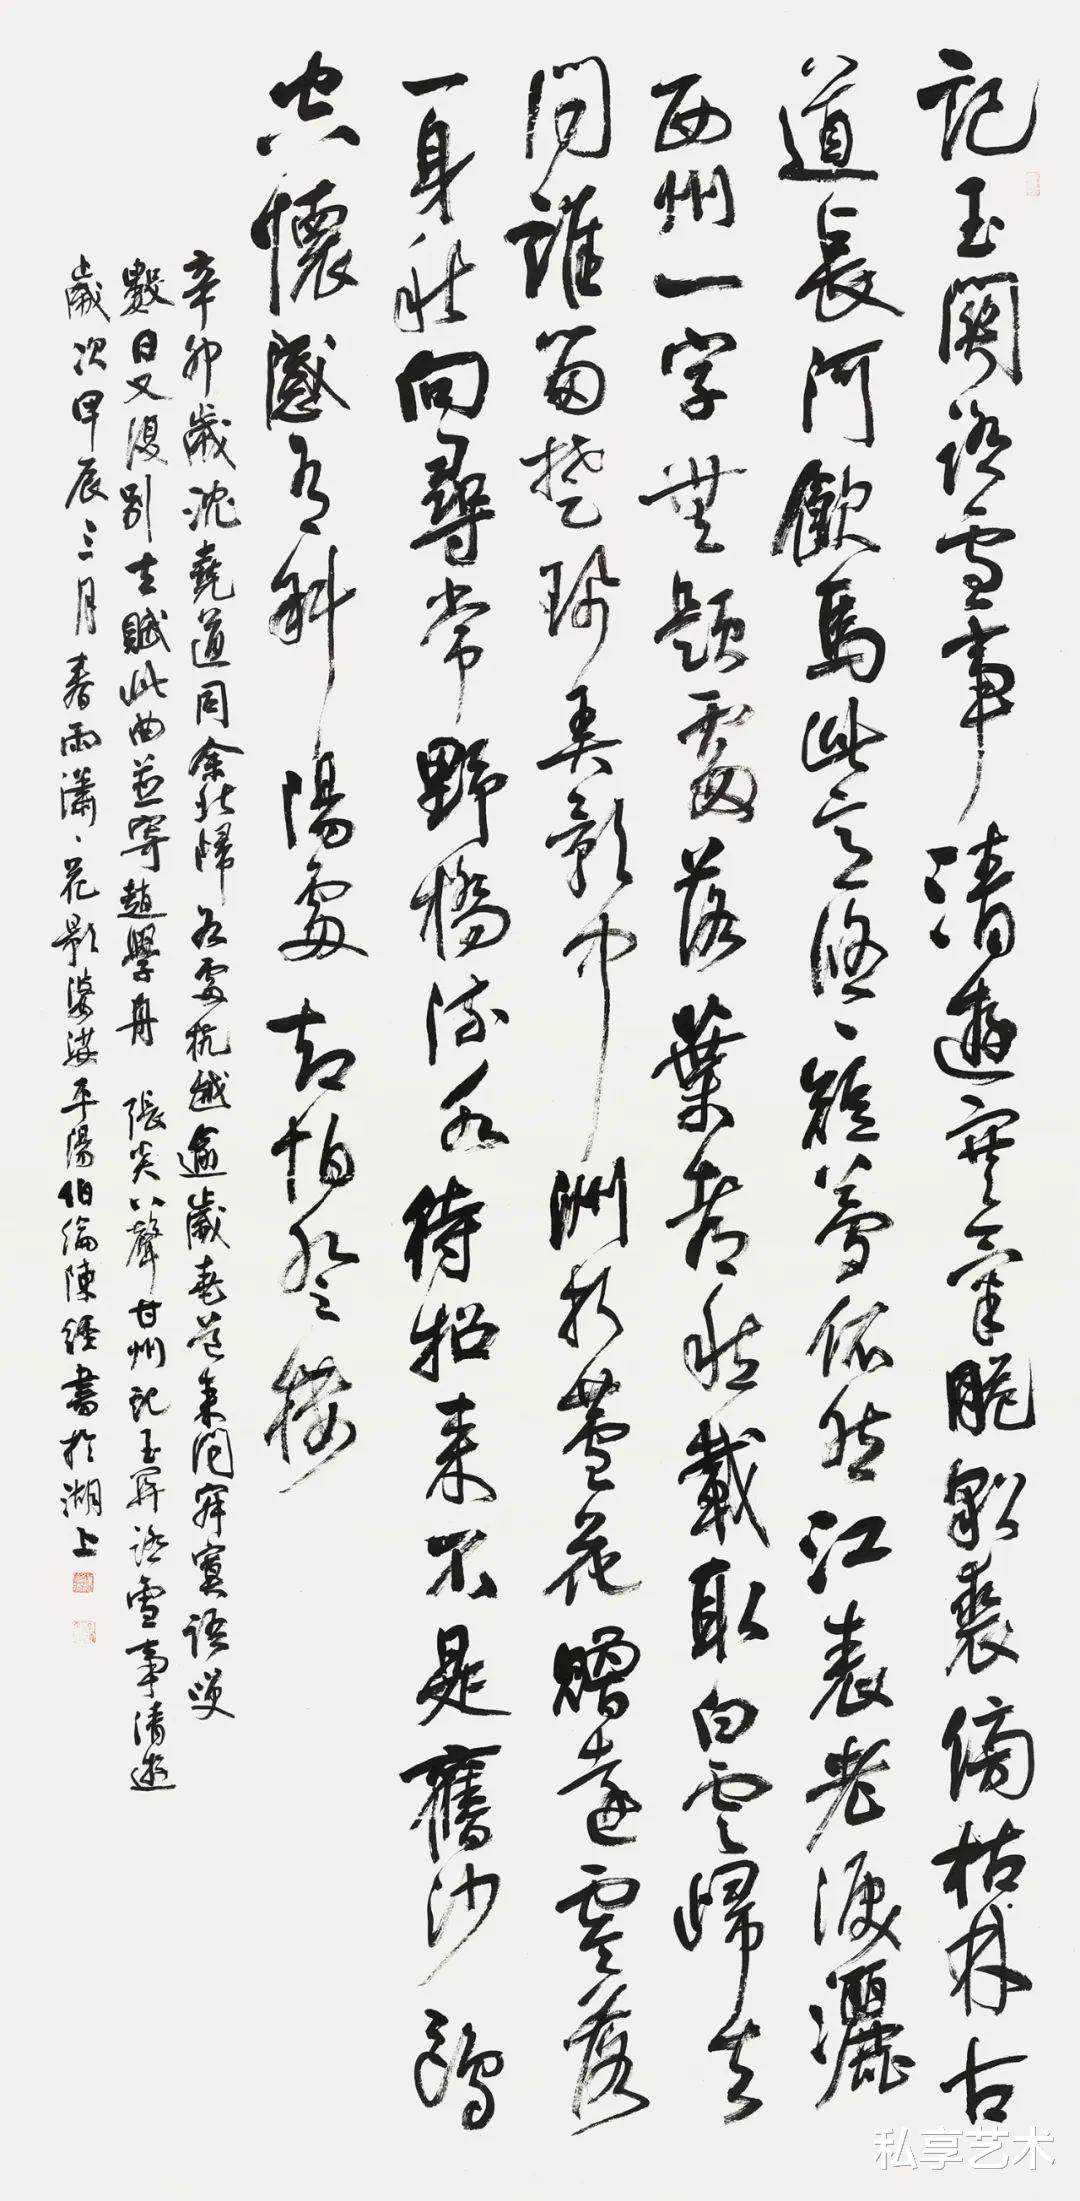 記玉關踏雪事清遊寒氣脆貂裘傍枯林古
道長河飲馬此意悠、短夢依然江表老淚灑
西州一字無題處落葉都愁載取白雲歸去
問誰留楚珮弄影中洲折蘆花贈遠零落
一身秋向尋常野橋流水待招來不是舊沙鷗
空懷感有斜陽處却怕登樓
辛卯歲沈堯道同余北歸各處杭越逾歲堯道來問寂寞語笑
數日又復別去賦此曲並寄趙學舟 張炎八聲甘州記玉關踏雪事清遊
歲次甲辰三月春雨瀟、花影婆娑平陽伯倫陳經書於湖上
私享艺术